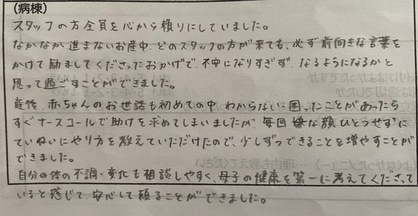 (病棟)
スタッフの方全員を心から頼りにしていました。
なかなか進まないお産中、どのスタッフの方が来ても、必ず前向きな言葉を
かけて励ましてくださったおかげで、不安になりすぎず、なるようになるかと
思って過ごすことができました。
産後、赤ちゃんのお世話も初めての中、わからない・困ったことがあったら
すぐナースコールで助けを求めてしまいましたが、毎回嫌な顔ひとつせずに
ていねいにやり方を教えていただけたので、少しずつできることを増やすことが
できました。
自分の体の不調・変化も相談しやすく、母子の健康を第一に考えてくださって
いると感じて安心して頼ることができました。